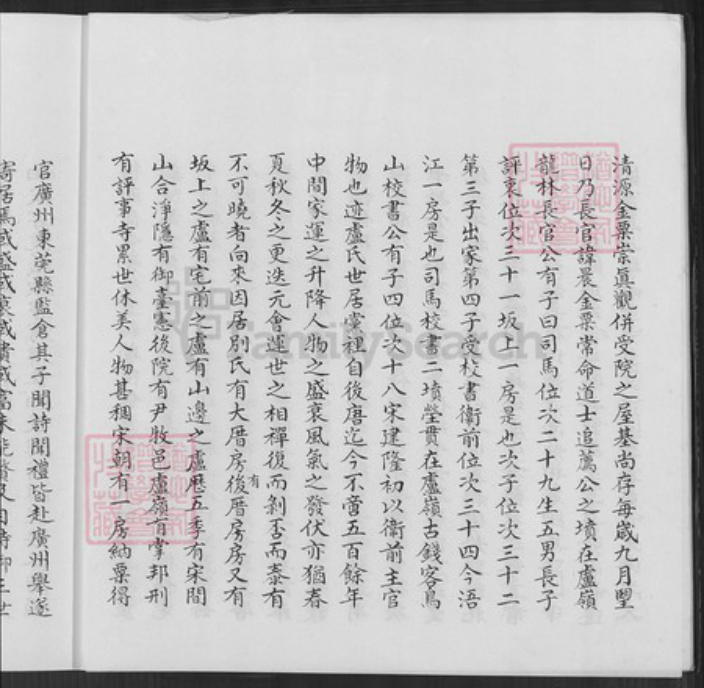 清源金粟崇眞觀併受院之屋基尚存每歲九月朢
日乃長官諱晨金粟常命道士追薦公之墳在盧嶺
龍林長官公有子曰司馬位次二十九生五男長子
評東位次三十一坂上一房是也次子位次三十二
第三子出家第四子受校書衞前位次三十四今浯
江一房是也司馬校書二墳塋貫在盧嶺古錢客鳥
山校書公有子四位次十八宋建隆初以衞前主官
物也迹盧氏世居黨裡自後唐迄今不啻五百餘年
中間家運之升降人物之盛衰風氣之發伏亦猶春
夏秋冬之更迭元會運世之相禪復而剝否而泰有
不可曉者向來因居別氏有大厝房後有厝房房又有
坂上之盧有宅前之盧有山邊之盧歷五季有宋間
山合淨隱有御臺憲後院有尹牧邑盧嶺有掌邦刑
有評事寺累世休美人物甚稠宋朝有一房納粟得
官廣州東莞縣監倉其子聞詩聞禮皆赴廣州舉遂
寄居焉或盛或衰或貴或富
FamilySearch